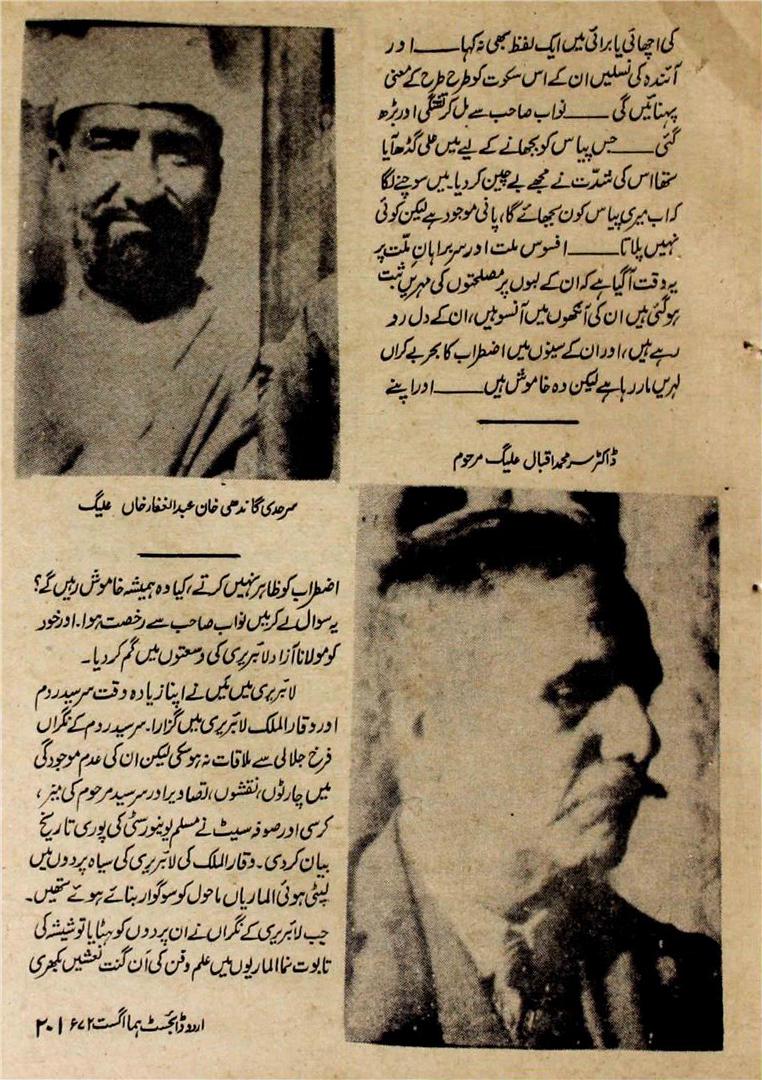 کی اچھائی یا برائی میں ایک لفظ بھی نہ کہا ــــــ اور
آئندہ کی نسلیں ان کے اس سکوت کو طرح طرح کے معنی
پہنائیں گی ــــــ نواب صاحب سے مل کر تشنگی اور بڑھ
گئی ــــــ جس پیاس کو بجھانے کے لیے میں علی گڈھ آیا
تھا اس کی شدّت نے مجھے بے چین کر دیا۔ میں سوچنے لگا
کہ اب میری پیاس کون بجھائے گا، پانی موجود ہے لیکن کوئی
نہیں پلاتا ــــــ افسوس ملت اور سربراہانِ ملّت پر
یہ وقت آگیا ہے کہ ان کے لبوں پر مصلحتوں کی مہریں ثبت
ہوگئی ہیں ان کی آنکھوں میں آنسو ہیں، ان کے دل رو
رہے ہیں، اور ان کے سینوں میں اضطراب کا بحر بے کراں
لہریں مار رہا ہے لیکن وہ خاموش ہیں ــــــ اور اپنے
ڈاکٹر سر محمد اقبال علیگ مرحوم
سرحدی گاندھی خان عبدالغفار خاں علیگ
اضطراب کو ظاہر نہیں کرتے، کیا وہ ہمیشہ خاموش رہیں گے؟
یہ سوال لے کر میں نواب صاحب سے رخصت ہوا۔ اور خود
کو مولانا آزاد لائبریری کی وسعتوں میں گم کر دیا۔
لائبریری میں میں نے اپنا زیادہ وقت سرسید روم
اور وقار الملک لائبریری میں گزارا۔ سرسید روم کے نگراں
فرخ جلالی سے ملاقات نہ ہوسکی لیکن ان کی عدم موجودگی
میں چارٹوں، نقشوں، تصاویر اور سرسید مرحوم کی میز،
کرسی اور صوفہ سیٹ نے مسلم یونیورسٹی کی پوری تاریخ
بیان کردی۔ وقار الملک کی لائبریری کی سیاہ پردوں میں
لپٹی ہوئی الماریاں ماحول کو سوگوار بنائے ہوئے تھیں۔
جب لائبریری کے نگراں نے ان پردوں کو ہٹایا تو شیشہ کی
تابوت نما الماریوں میں علم و فن کی اَن گنت نعشیں بکھری
اردو ڈائجسٹ ہما اگست ۷۲ء / ۲۰۱